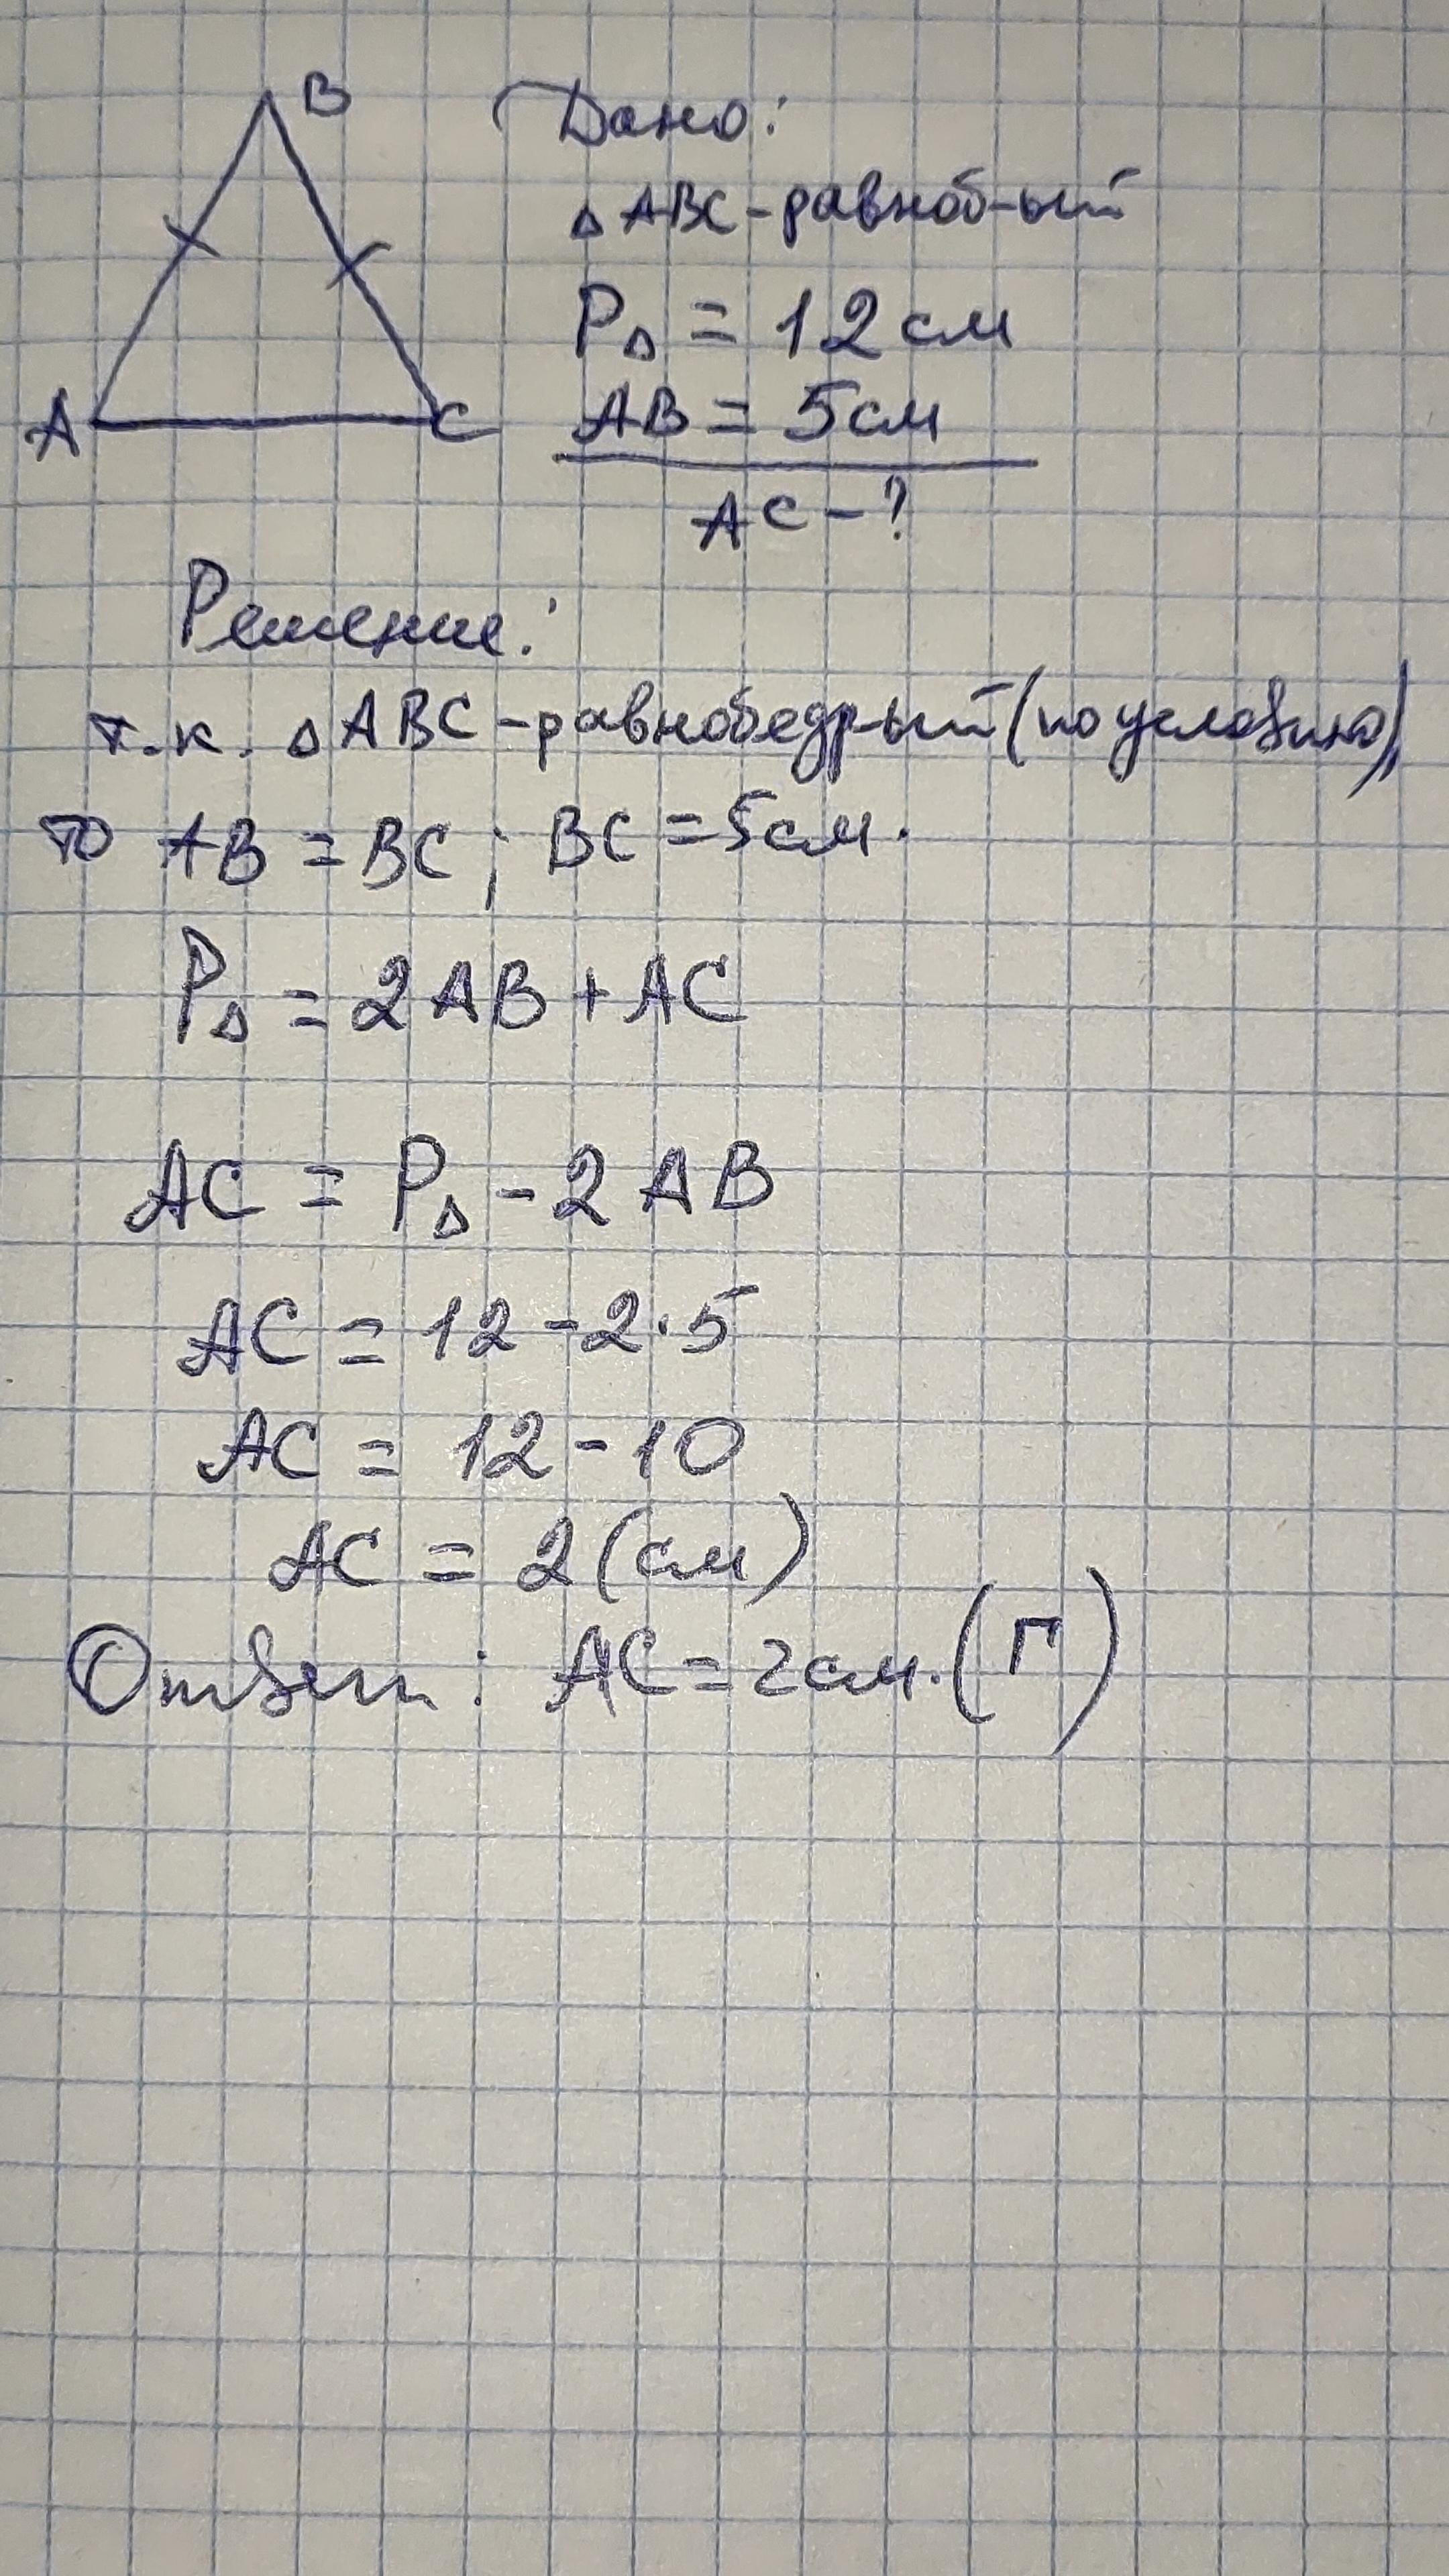 B
A
C
Дано:
△ABC-равноб-ый
P△ = 12 см
AB = 5 см
AC - ?
Решение:
т.к. △ABC-равнобедр-ый (по условию),
то AB = BC; BC = 5 см.
P△ = 2AB + AC
AC = P△ - 2AB
AC = 12 - 2·5
AC = 12 - 10
AC = 2 (см)
Ответ: AC = 2 см. (Г)